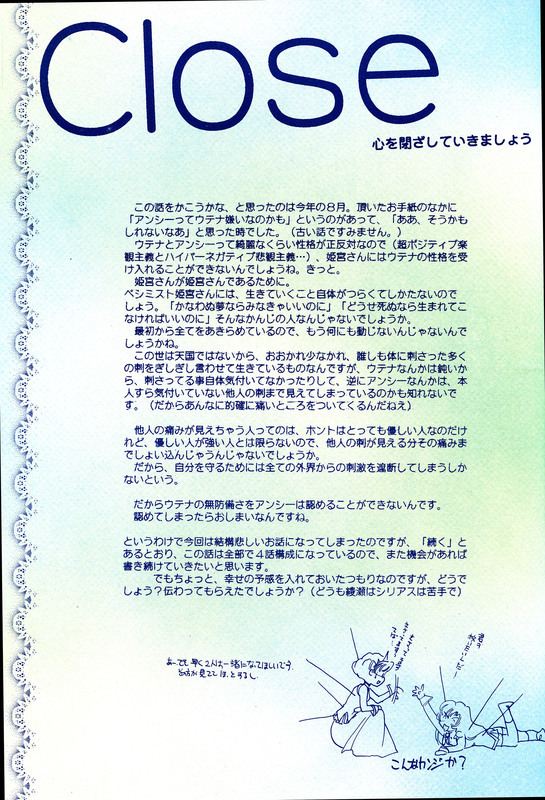 Close
心を閉ざしていきましょう
この話をかこうかな、と思ったのは今年の８月。頂いたお手紙のなかに
「アンシーってウテナ嫌いなのかも」というのがあって、「ああ、そうかも
しれないなあ」と思った時でした。（古い話ですみません。）
ウテナとアンシーって綺麗なくらい性格が正反対なので（超ポジティブ楽
観主義とハイパーネガティブ悲観主義…）、姫宮さんにはウテナの性格を受
け入れることができないんでしょうね。きっと。
姫宮さんが姫宮さんであるために。
ペシミスト姫宮さんには、生きていくこと自体がつらくてしかたないので
しょう。「かなわぬ夢ならみなきゃいいのに」「どうせ死ぬなら生まれてこ
なければいいのに」そんなかんじの人なんじゃないでしょうか。
最初から全てをあきらめているので、もう何にも動じないんじゃないんで
しょうかね。
この世は天国ではないから、おおかれ少なかれ、誰しも体に刺さった多く
の刺をぎしぎし言わせて生きているものなんですが、ウテナなんかは鈍いか
ら、刺さってる事自体気付いてなかったりして、逆にアンシーなんかは、本
人すら気付いていない他人の刺まで見えてしまっているのかも知れないで
す。（だからあんなに的確に痛いところをついてくるんだねえ）
他人の痛みが見えちゃう人っての は、ホントはとっても優しい人なのだけ
れど、優しい人が強い人とは限らないので、他人の刺が見える分その痛みま
でしょい込んじゃうんじゃないでしょうか。
だから、自分を守るためには全ての外界からの刺激を遮断してしまうしか
ないという。
だからウテナの無防備さをアンシーは認めることができないんです。
認めてしまったらおしまいなんですね。
というわけで今回は結構悲しいお話になってしまったのですが、「続く」と
あるとおり、この話は全部で４話構成になっているので、また機会があれば
書き続けていきたいと思います。
でもちょっと、幸せの予感を入れておいたつもりなのですが、どうで
しょう？伝わってもらえたでしょうか？（どうも綾瀬はシリアスは苦手で）
あーでも早く2人は一緒になってほしいです。
こんなカンジか？